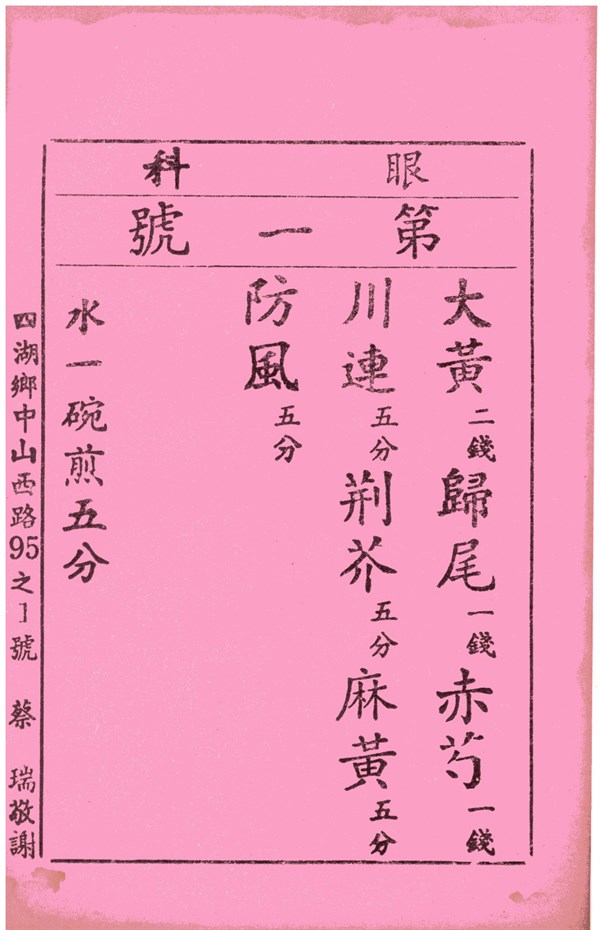 眼科
第一號
大黃二錢歸尾一錢赤芍一錢
川連五分荆芥五分麻黃五分
防風五分
水一碗煎五分
四湖鄉中山西路95之1號 蔡 瑞敬謝